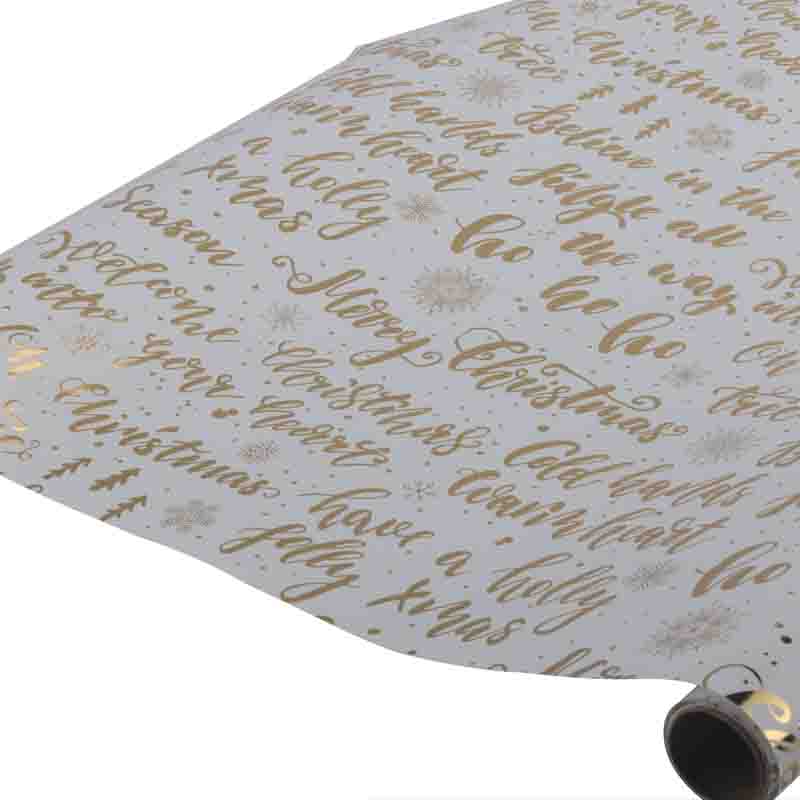 your
On Christmas
tree
Cold hands
Believe in the
warm heart
Jingle all
a holly
the way
xmas
ho
ho ho
Season
Merry
Welcome
Christmas
unto
your
Christmas
tree
heart
Christmas
Cold hands
have a
warm heart
jolly
a holly
ho
xmas